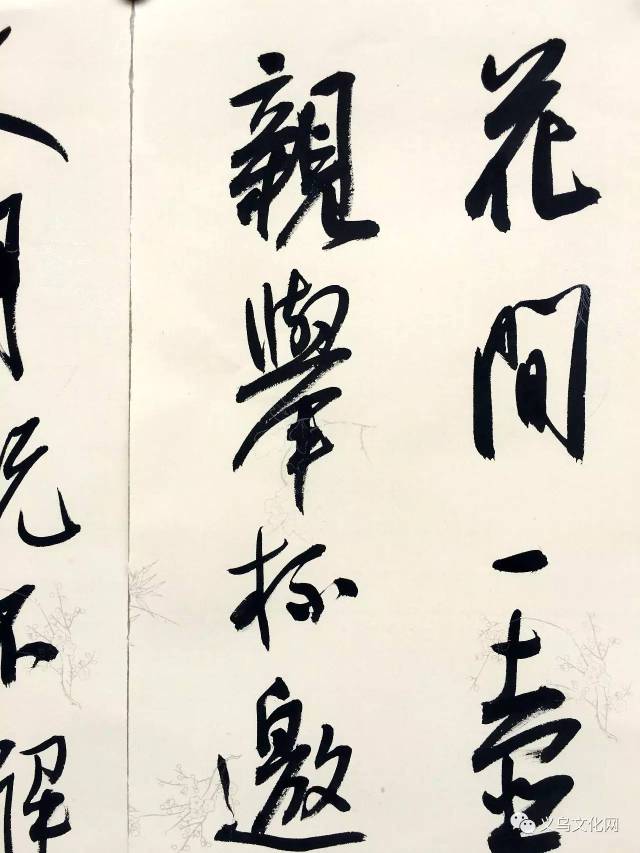 花間一壺
親舉杯邀
月既不解
义乌文化网